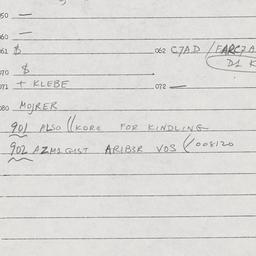 050 —
060 —
061 $ 062 C7AD / FARC7A
D1 K
070 $
071 + KLEBE 072 —
080 MOJRER
901 ALSO // KORE FOR KINDLING
902 AZM1GHST ARIB3R VOS /008120